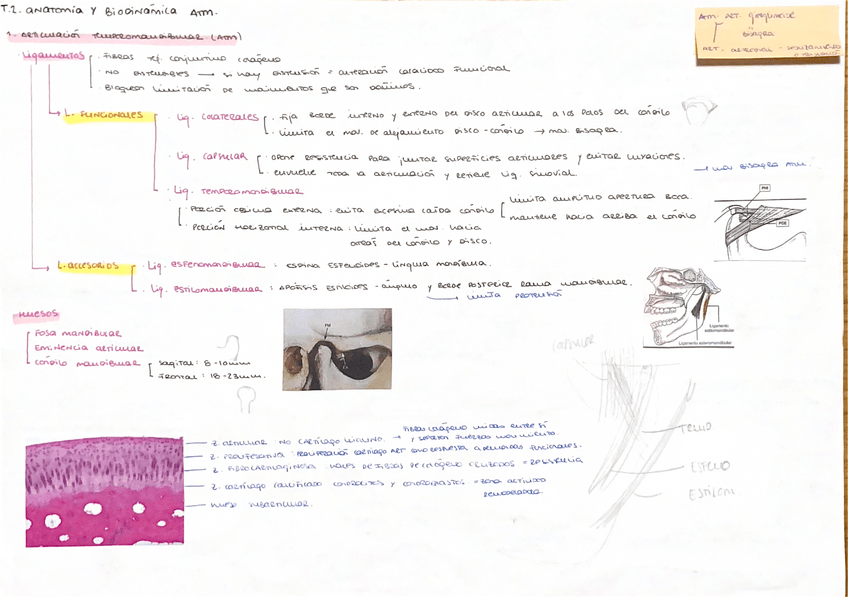 T.2. ANATOMÍA Y BIODINÁMICA ATM.
1. ARTICULACIÓN TEMPOROMANDIBULAR (ATM)
ATM: ART. ginglimoide
bisagra
ART. artrodial
Ligamentos
· Fibras tej. conjuntivo colágeno
· NO EXTENSIBLES → si hay extensión = alteración
· Bloqueo limitación de movimientos
L. FUNCIONALES
· Lig. COLATERALES
· Fija borde interno y externo del disco articular a los polos del cóndilo
· Limita el mov. de alejamiento disco-cóndilo → mov. bisagra.
· Lig. CAPSULAR
· opone resistencia para juntar superficies articulares y evitar luxaciones.
· envuelve toda la articulación y retiene líq. sinovial.
→ mov bisagra ATM.
· Lig. TEMPOROMANDIBULAR
· PORCIÓN OBLICUA EXTERNA: evita excesiva caída cóndilo
limita amplitud apertura boca.
mantiene hacia arriba el cóndilo
· PORCIÓN HORIZONTAL INTERNA: limita el mov. hacia
atrás del cóndilo y disco.
L. ACCESORIOS
· Lig. ESFENOMANDIBULAR: ESPINA ESFENOIDES - Língula mandíbula.
· Lig. ESTILOMANDIBULAR: APÓFISIS ESTILOIDES - ángulo y borde posterior rama mandibular.
→ limita protrusión
PHI
POE
Ligamento
esfenomandibular
Ligamento estilomandibular
HUESOS
FOSA MANDIBULAR
EMINENCIA ARTICULAR
CÓNDILO MANDIBULAR
Sagital: 8-10mm
Frontal: 18-23mm.
FM
capsular
Fibras colágeno unidas entre sí
Z. ARTICULAR: NO CARTÍLAGO HIALINO. → y soportan fuerzas movimiento.
Z. PROLIFERATIVA: PROLIFERACIÓN CARTÍLAGO ART como respuesta a demandas funcionales.
Z. FIBROCARTILAGINOSA: HACES DE FIBRAS DE COLÁGENO CRUZADOS = RESISTENCIA
Z. CARTÍLAGO CALCIFICADO: CONDROCITOS Y CONDROBLASTOS = ZONA ACTIVIDAD
REMODELADORA.
HUESO SUBARTICULAR.
TEMPO
ESFENO
ESTILOM